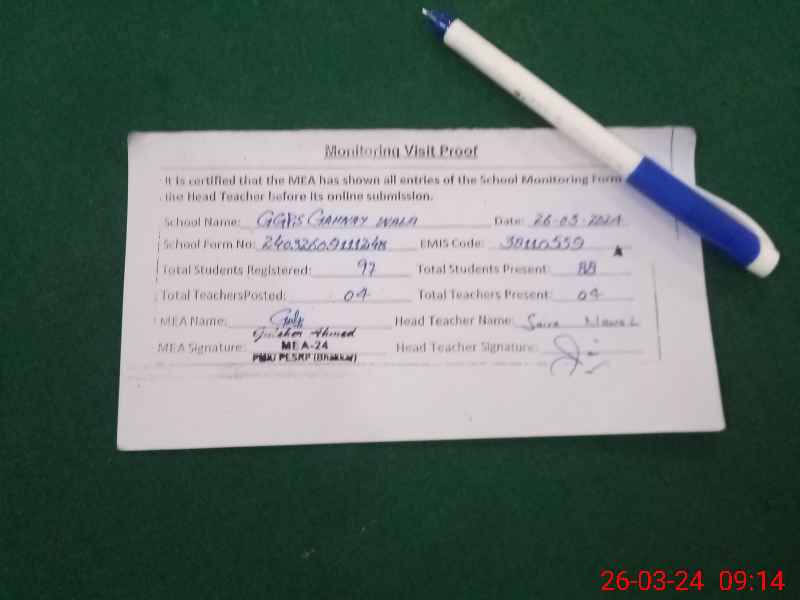 Monitoring Visit Proof
It is certified that the MEA has shown all entries of the School Monitoring Form
the Head Teacher before its online submission.
School Name: GGPS GAHNAY WALA Date: 26-03-2024
School Form No: EMIS Code: 38110559
Total Students Registered: 97 Total Students Present: 88
Total TeachersPosted: 04 Total Teachers Present: 04
MEA Name: Head Teacher Name: Saira
Ahmed
MEA Signature: MEA-24 Head Teacher Signature:
PMIU PESRP (Bhakkar)
26-03-24 09:14